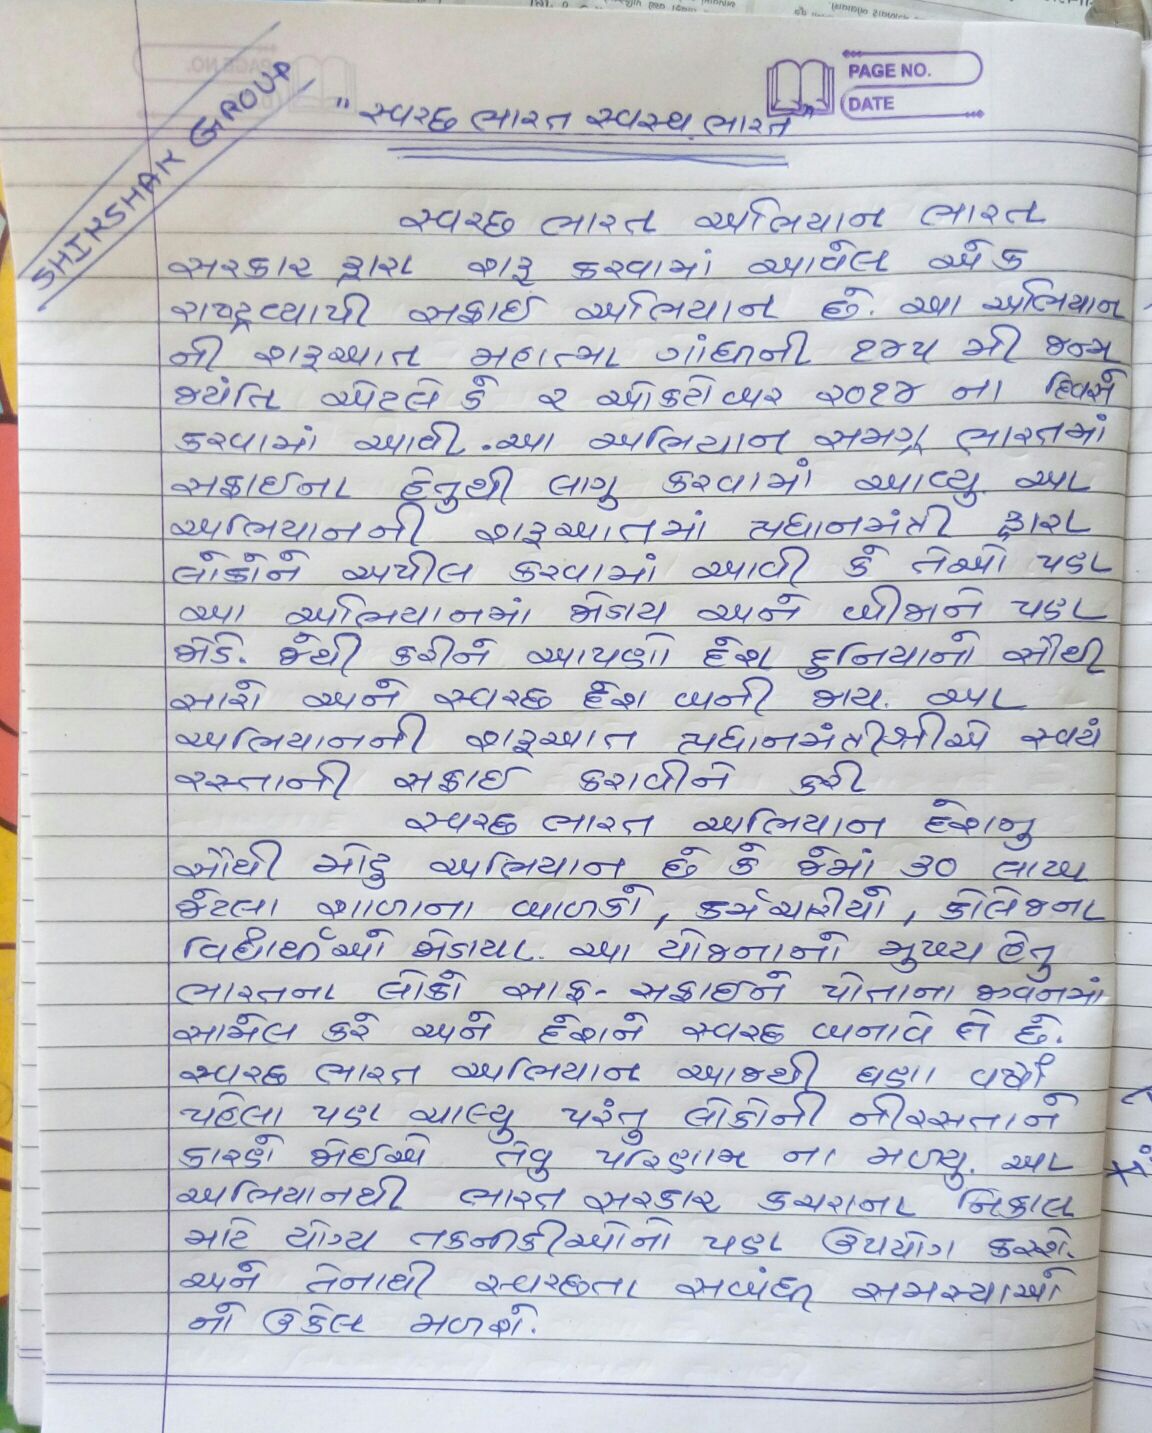 PAGE NO.
DATE
SHIKSHAK GROUP
"સ્વચ્છ ભારત સ્વસ્થ ભારત"
સ્વચ્છ ભારત અભિયાન ભારત
સરકાર દ્વારા શરૂ કરવામાં આવેલ એક
રાષ્ટ્રવ્યાપી સફાઈ અભિયાન છે. આ અભિયાન
ની શરૂઆત મહાત્મા ગાંધીની ૧૪૫ મી જન્મ
જયંતિ એટલે કે ૨ ઓક્ટોબર ૨૦૧૪ ના દિવસે
કરવામાં આવી. આ અભિયાન સમગ્ર ભારતમાં
સફાઈના હેતુથી લાગુ કરવામાં આવ્યુ. આ
અભિયાનની શરૂઆતમાં પ્રધાનમંત્રી દ્વારા
લોકોને અપીલ કરવામાં આવી કે તેઓ પણ
આ અભિયાનમાં જોડાય અને બીજાને પણ
જોડે. જેથી કરીને આપણો દેશ દુનિયાનો સૌથી
સારો અને સ્વચ્છ દેશ બની જાય. આ
અભિયાનની શરૂઆત પ્રધાનમંત્રીશ્રીએ સ્વયં
રસ્તાની સફાઈ કરાવીને કરી
સ્વચ્છ ભારત અભિયાન દેશનુ
સૌથી મોટુ અભિયાન છે કે જેમાં ૩૦ લાખ
જેટલા શાળાના બાળકો, કર્મચારીયો, કોલેજના
વિદ્યાર્થીઓ જોડાયા. આ યોજનાનો મુખ્ય હેતુ
ભારતના લોકો સાફ-સફાઈને પોતાના જીવનમાં
સામેલ કરે અને દેશને સ્વચ્છ બનાવે તે છે.
સ્વચ્છ ભારત અભિયાન આજથી ઘણા વર્ષો
પહેલા પણ ચાલ્યુ પરંતુ લોકોની નીરસતાને
કારણે જોઈએ તેવુ પરિણામ ના મળ્યુ. આ
અભિયાનથી ભારત સરકાર કચરાના નિકાલ
માટે યોગ્ય તકનીકીઓનો પણ ઉપયોગ કરશે.
અને તેનાથી સ્વચ્છતા સબંધી સમસ્યાઓ
નો ઉકેલ મળશે.